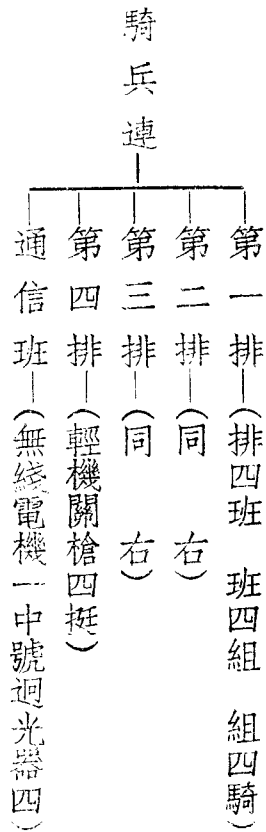 騎兵連
第一排（排四班　班四組　組四騎）
第二排（同　右）
第三排（同　右）
第四排（輕機關槍四挺）
通信班（無綫電機一中號迴光器四）